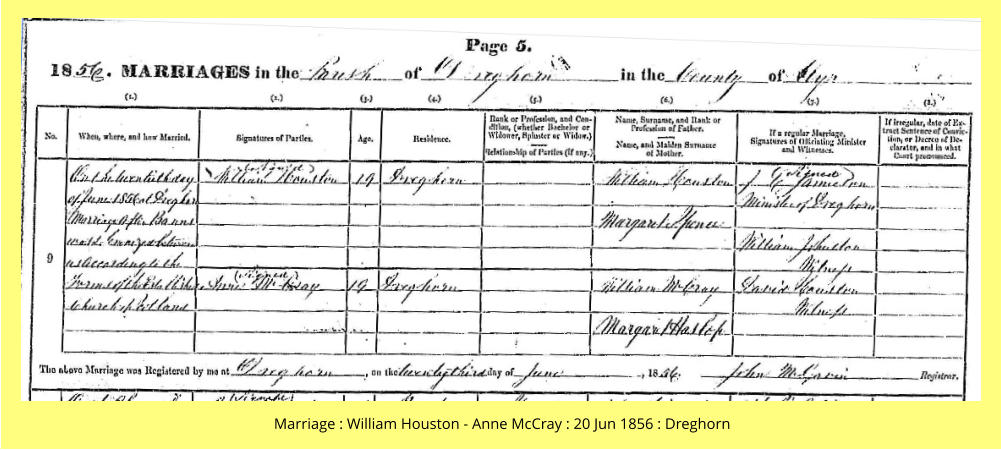 Page 5.
1856. MARRIAGES in the Parish of Dreghorn in the County of Ayr
(1.) (2.) (3.) (4.) (5.) (6.) (7.) (8.)
No. When, where, and how Married. Signatures of Parties. Age. Residence. Rank or Profession, and Condition, (whether Bachelor or Widower, Spinster or Widow.) Relationship of Parties (if any.) Name, Surname, and Rank or Profession of Father. Name, and Maiden Surname of Mother. If a regular Marriage, Signatures of Officiating Minister and Witnesses. If irregular, date of Extract Sentence of Conviction, or Decree of Declarator, and in what Court pronounced.
On the twentieth day (Signed) William Houston 19 Dreghorn William Houston (Signed) J. G. Jamieson
of June 1856 at Dreghorn Minister of Dreghorn
Marriage after Banns Margaret Spence
was solemnized between William Johnston
9 us according to the Witness
Forms of the Established (Signed) Anne McCray 19 Dreghorn William McCray David Houston
Church of Scotland Witness
Margaret Haslop
The above Marriage was Registered by me at Dreghorn, on the twenty third day of June, 1856. John McGavin Registrar.
Marriage : William Houston - Anne McCray : 20 Jun 1856 : Dreghorn